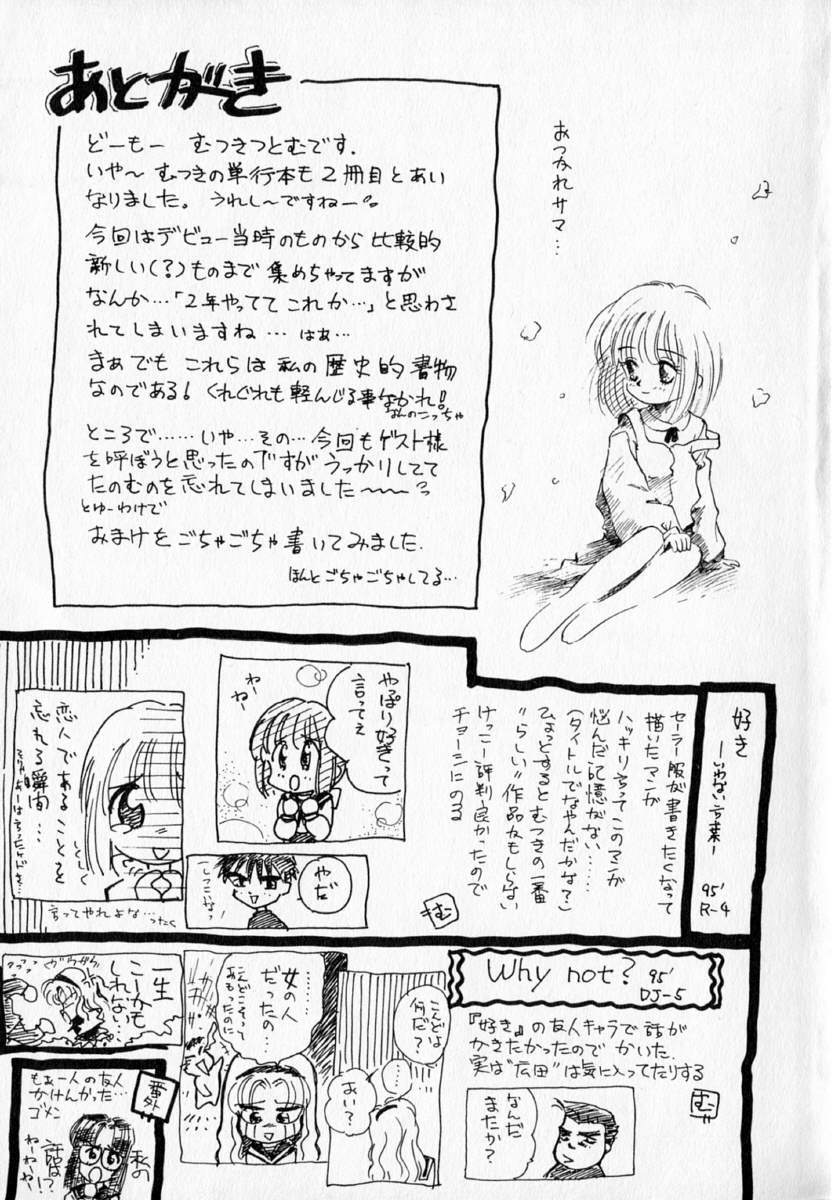 あとがき
どーもー むつきつとむです.
いや〜 むつきの単行本も2冊目とあい
なりました。 うれし〜ですねー
今回はデビュー当時のものから 比較的
新しい(?)ものまで 集めちゃってますが
なんか…「2年やってて これか…」と思わさ
れてしまいますね… はぁ…
まぁでも これらは 私の 歴史的書物
なのである! くれぐれも軽んじる事なかれ!
なんのこっちゃ
ところで……いや…その…今回もゲスト様
を呼ぼうと思ったのですが うっかりしてて
たのむのを忘れてしまいました〜〜
とゆーわけで
おまけをごちゃごちゃ書いてみました.
ほんとごちゃごちゃしてる…
おつかれサマ…
好き
ーいけない言葉ー
95'
R-4
セーラー服が書きたくなって
描いたマンガ
ハッキリ言ってこのマンガ
悩んだ記憶がない……
(タイトルでなやんだかな?)
ひょっとするとむつきの一番
"らしい"作品かもしらない
けっこー評判良かったので
チョーシにのる
む
やっぱり好きって
言ってェ
ねー
ねー
やだ
しつこいな!
恋人であることを
忘れる瞬間…
しくしく
言ってやれよな…ったく
Why not?
95'
DJ-5
『好き』の友人キャラで話が
かきたかったので かいた.
実は"広田"は気に入ってたりする
む
なんだ
またか?
こんどは
何だ?
あい?
女の人
だったの…
こんどこそって
おもったのに
一生
こーかも
しれない…
番外
もぉ一人の友人
かけんかった…
ゴメン
私の
話は!?
ねーねーや!?